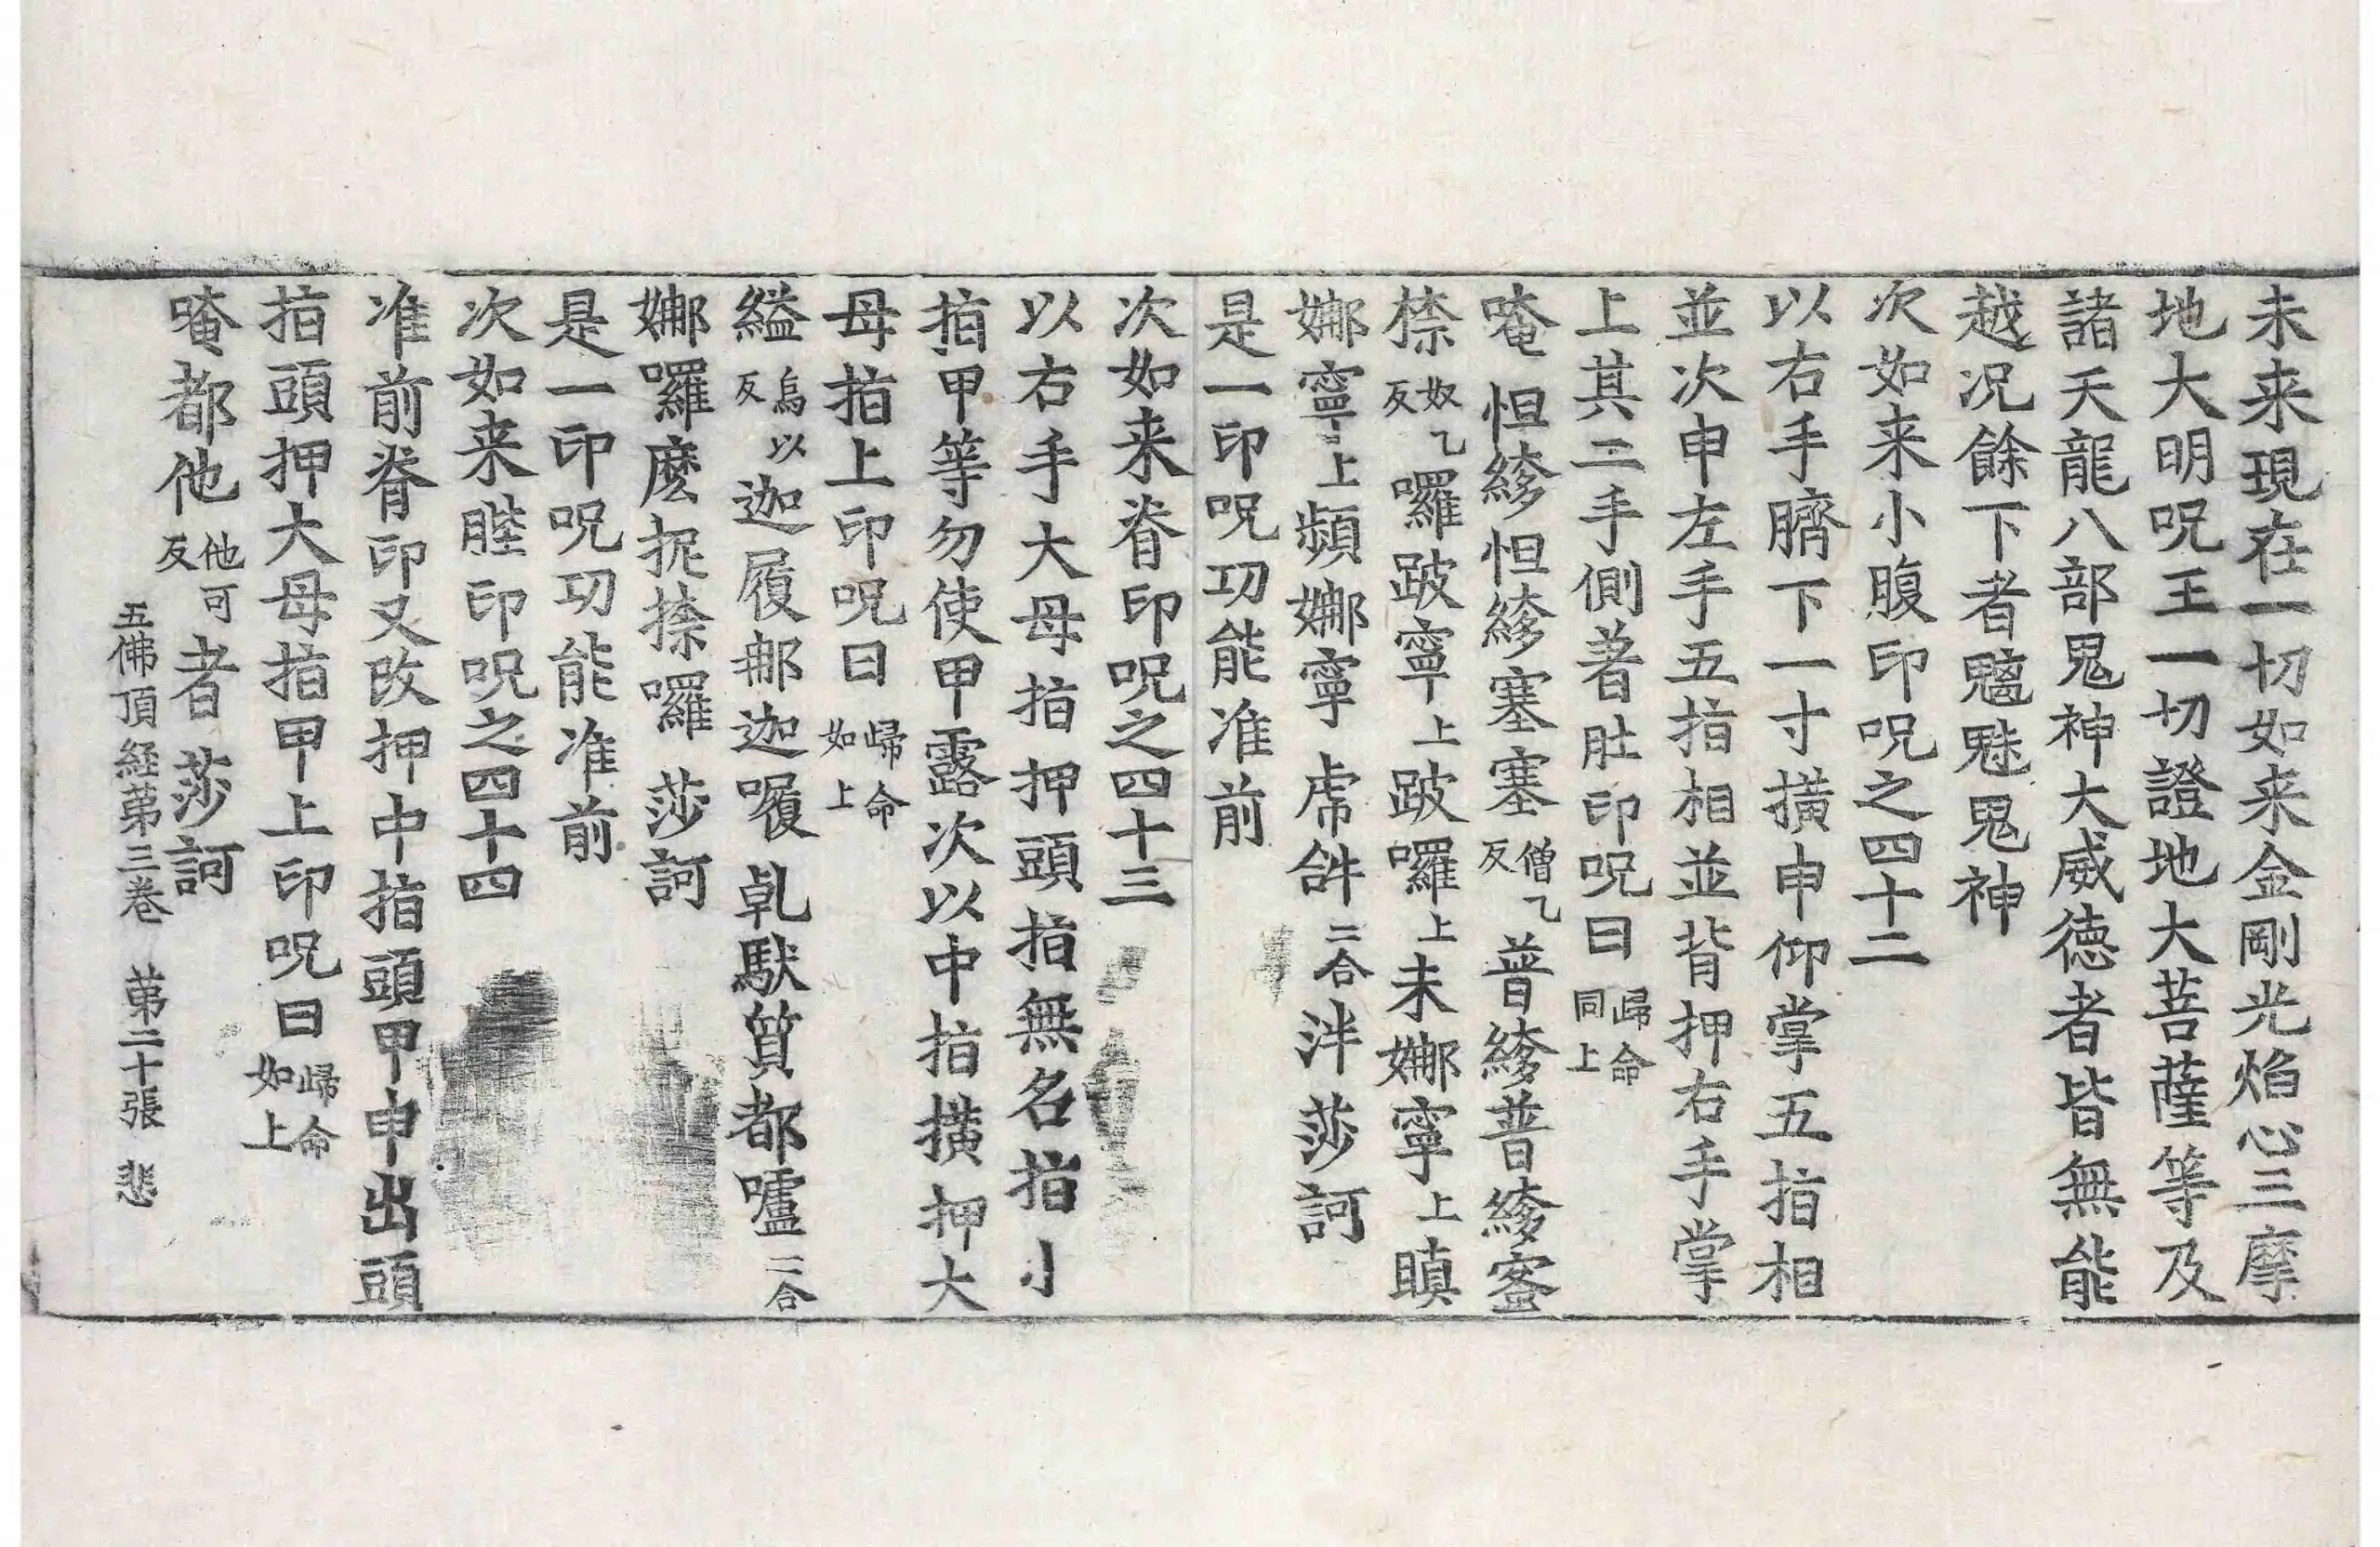 未来現在一切如来金剛光焰心三摩
地大明呪王一切證地大菩薩等及
諸天龍八部鬼神大威德者皆無能
越况餘下者魑魅鬼神
次如来小腹印呪之四十二
以右手臍下一寸撗申仰掌五指相
並次申左手五指相並背押右手掌
上其二手側著肚印呪曰歸命同上
唵怛縿怛縿塞塞僧乙反普縿普縿窒
㮈奴乙反囉跛寧上跛囉上未娜寧上瞋
娜寧上頻娜寧虎𤙖二合泮莎訶
是一印呪功能准前
次如来脊印呪之四十三
以右手大母指押頭指無名指小
指甲等勿使甲露次以中指撗押大
母指上印呪曰歸命如上
縊烏以反迦履郍迦囇乹馱質都嚧二合
娜囉麼抳捺囉莎訶
是一印呪功能准前
次如来䏶印呪之四十四
准前脊印又改押中指頭甲申出頭
指頭押大母指甲上印呪曰歸命如上
唵都他他可反者莎訶
五佛頂経第三卷 第二十張 悲